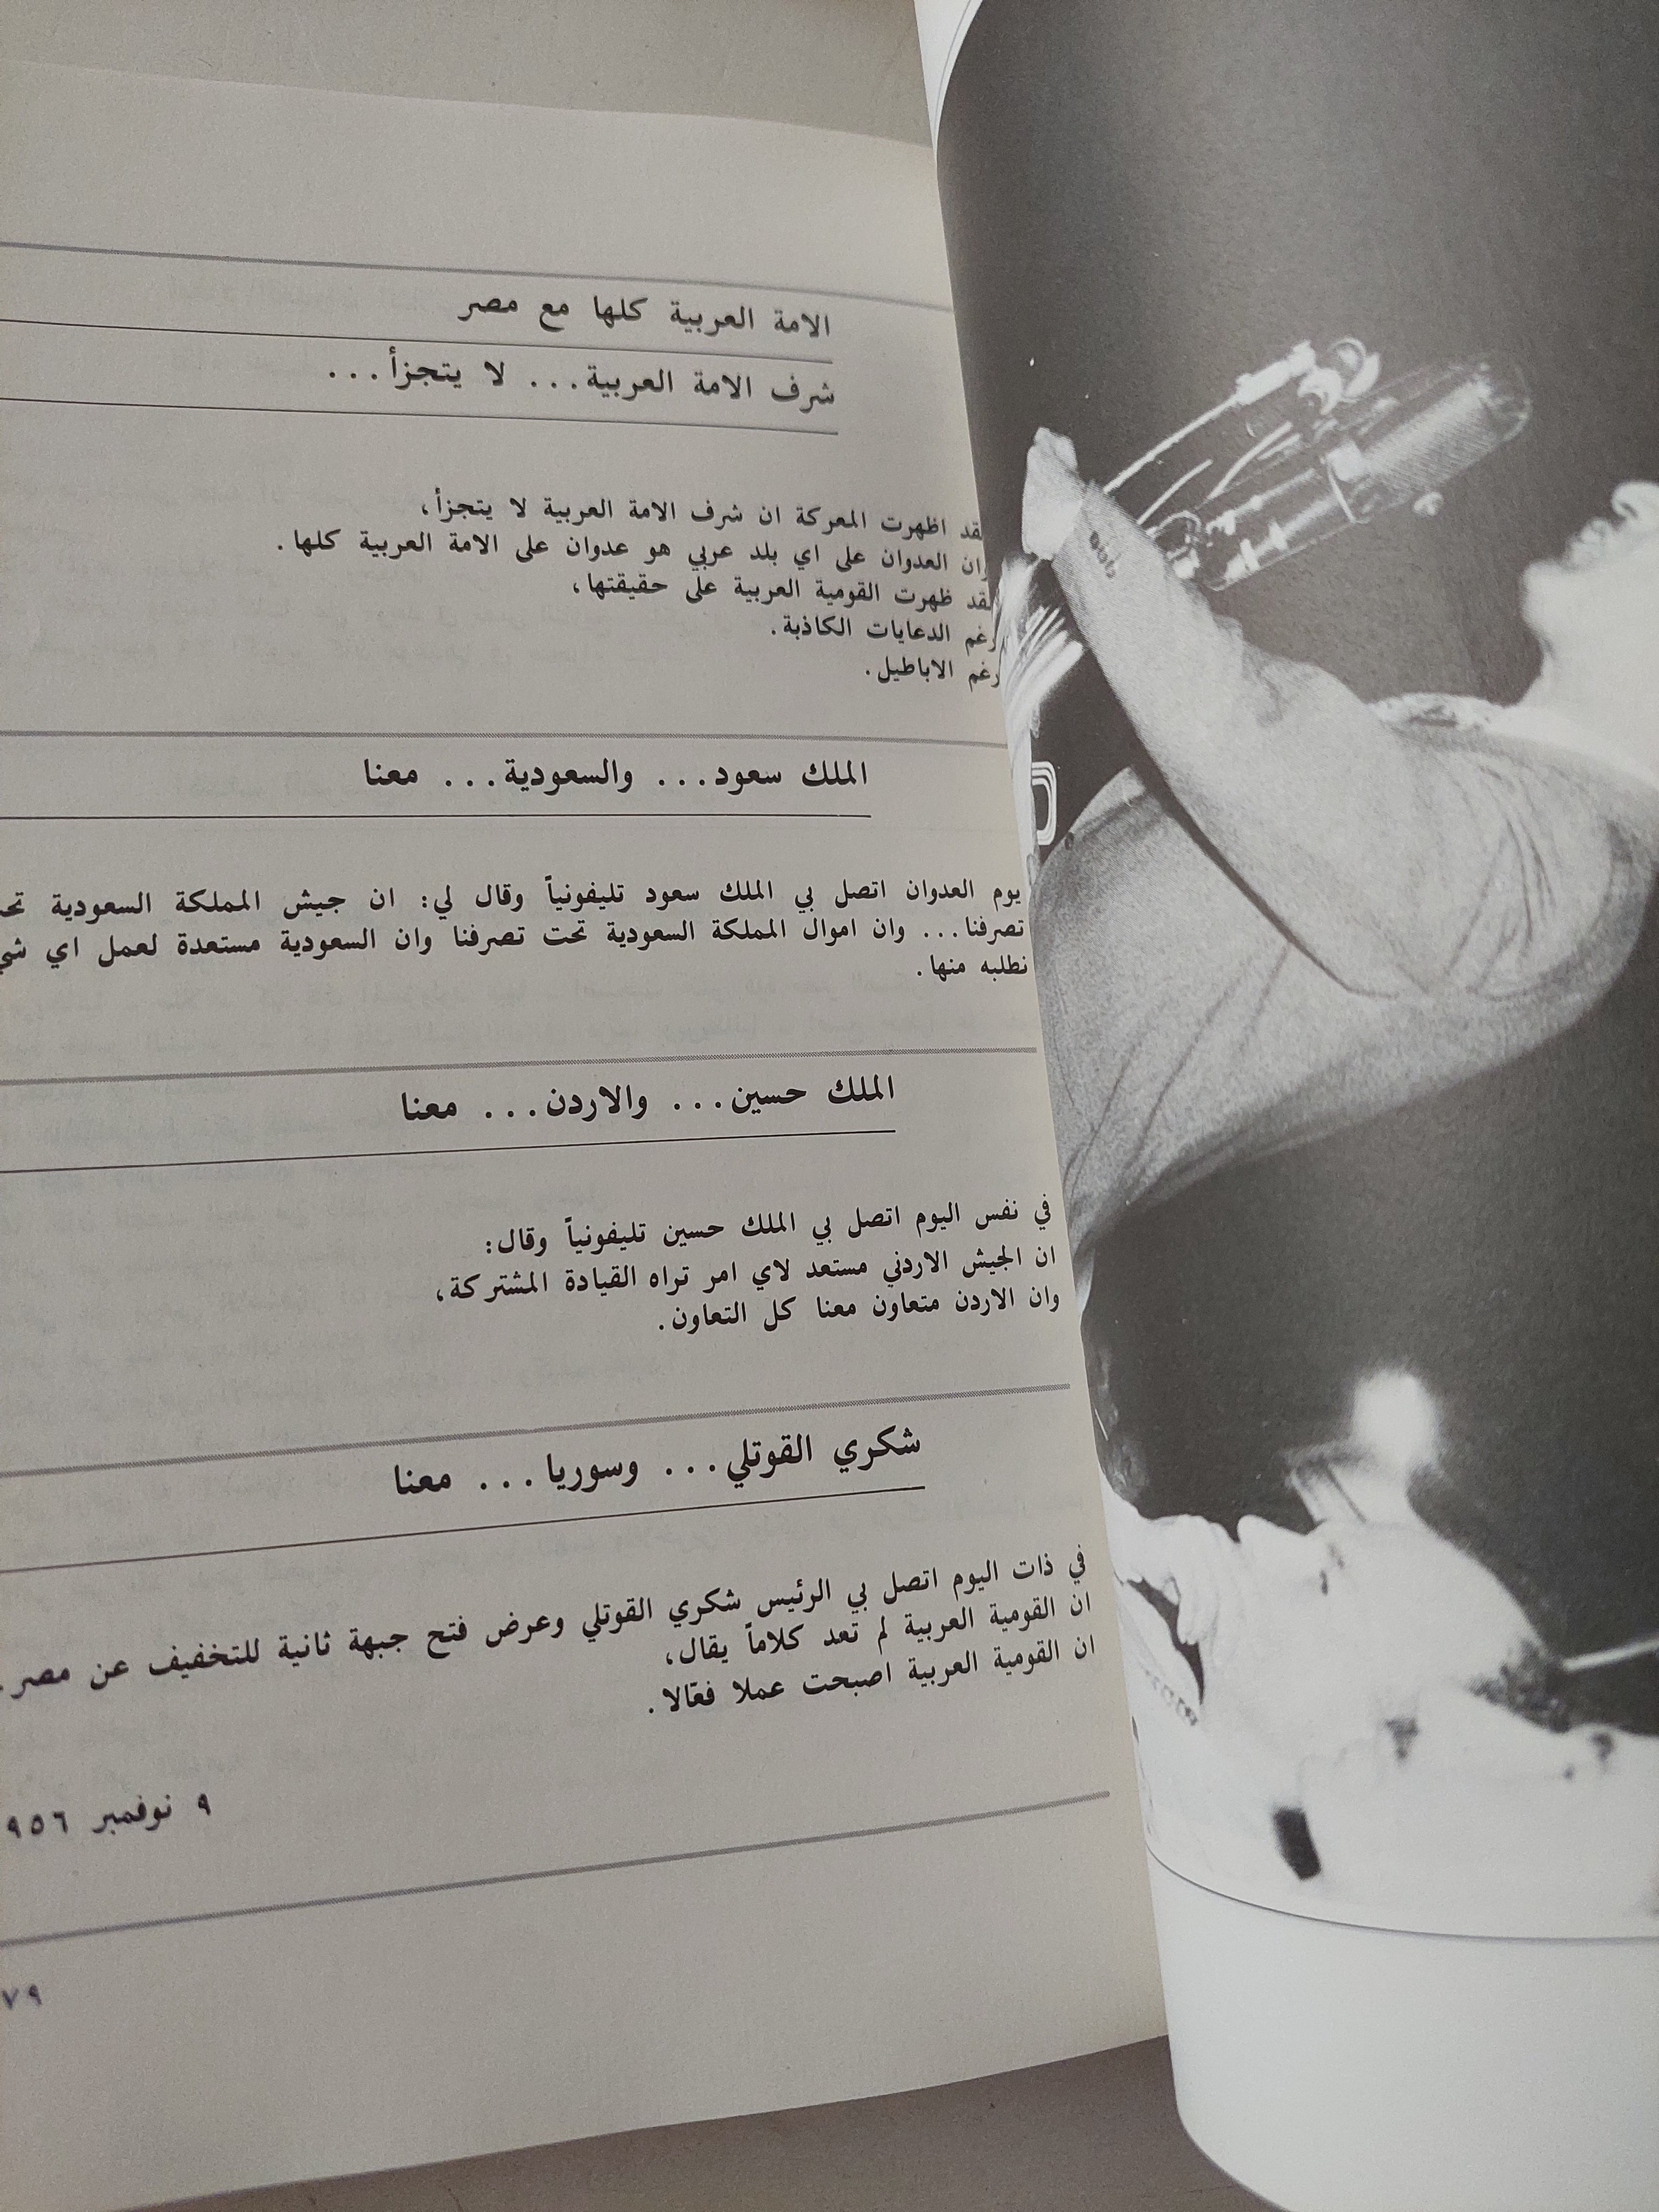 الامة العربية كلها مع مصر
شرف الامة العربية... لا يتجزأ...
اظهرت المعركة ان شرف الامة العربية لا يتجزأ،
وان العدوان على اي بلد عربي هو عدوان على الامة العربية كلها.
ظهرت القومية العربية على حقيقتها،
رغم الدعايات الكاذبة.
رغم الاباطيل.
الملك سعود... والسعودية... معنا
يوم العدوان اتصل بي الملك سعود تليفونياً وقال لي: ان جيش المملكة السعودية
تصرفنا... وان اموال المملكة السعودية تحت تصرفنا وان السعودية مستعدة لعمل اي
نطلبه منها.
الملك حسين... والاردن... معنا
في نفس اليوم اتصل بي الملك حسين تليفونياً وقال:
ان الجيش الاردني مستعد لاي امر تراه القيادة المشتركة،
وان الاردن متعاون معنا كل التعاون.
شكري القوتلي... وسوريا... معنا
في ذات اليوم اتصل بي الرئيس شكري القوتلي وعرض فتح جبهة ثانية للتخفيف عن مصر.
ان القومية العربية لم تعد كلاماً يقال،
ان القومية العربية اصبحت عملا فعّالا.
٩ نوفمبر ٩٥٦
٧٩